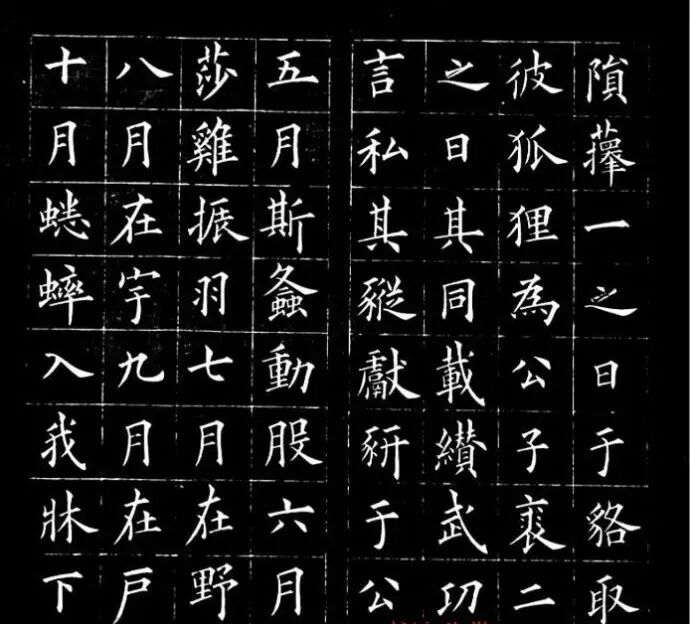 隕蘀一之日于貉取
彼狐狸為公子裘二
之日其同載纘武功
言私其豵獻豜于公
五月斯螽動股六月
莎雞振羽七月在野
八月在宇九月在戶
十月蟋蟀入我牀下